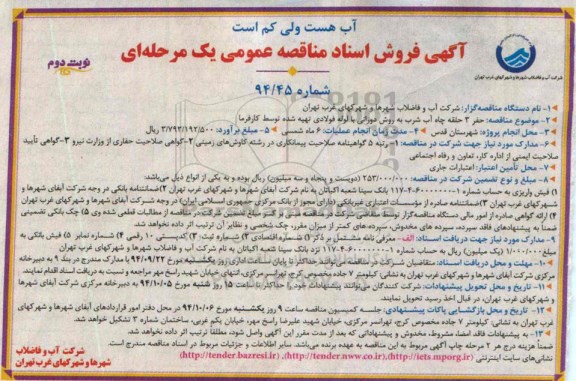 آب هست ولی کم است
آگهی فروش اسناد مناقصه عمومی یک مرحله‌ای
نوبت دوم
شماره ۹۴/۴۵
شرکت آب و فاضلاب شهرها و شهرکهای غرب تهران
۱- نام دستگاه مناقصه‌گزار: شرکت آب و فاضلاب شهرها و شهرکهای غرب تهران
۲- موضوع مناقصه: حفر ۲ حلقه چاه آب شرب به روش موازی با لوله فولادی تهیه شده توسط کارفرما
۳- محل انجام پروژه: شهرستان قدس ۴- مدت زمان انجام عملیات: ۶ ماه شمسی ۵- مبلغ برآورد: ۳/۷۹۳/۱۹۲/۵۰۰ ریال
۶- مدارک مورد نیاز جهت شرکت در مناقصه: ۱- رتبه ۵ گواهینامه صلاحیت پیمانکاری در رشته کاوش‌های زمینی ۲- گواهی صلاحیت حفاری از وزارت نیرو ۳- گواهی تأیید
صلاحیت ایمنی از اداره کار، تعاون و رفاه اجتماعی
۷- محل تأمین اعتبار: اعتبارات جاری
۸- مبلغ و نوع تضمین شرکت در مناقصه: ۲۵۳/۰۰۰/۰۰۰ (دویست و پنجاه و سه میلیون) ریال بوده و به یکی از انواع ذیل می‌باشد:
۱) فیش واریزی به حساب شماره ۱-۶۰۰۰۰۰۰-۴-۱۱۷ بانک سینا شعبه اکباتان به نام شرکت آبفای شهرها و شهرکهای غرب تهران ۲) ضمانتنامه بانکی در وجه شرکت آبفای شهرها و
شهرکهای غرب تهران ۳) ضمانتنامه صادره از مؤسسات اعتباری غیربانکی (دارای مجوز از بانک مرکزی جمهوری اسلامی ایران) در وجه شرکت آبفای شهرها و شهرکهای غرب تهران
۴) ارائه گواهی صادره از امور مالی دستگاه مناقصه‌گزار توسط متقاضی شرکت در مناقصه مبنی بر کسر مبلغ تضمین شرکت در مناقصه از مطالبات قطعی شده وی ۵) چک بانکی تضمینی
ضمناً به پیشنهادهای فاقد سپرده، سپرده های مخدوش، سپرده‌های کمتر از میزان مقرر، چک شخصی و نظایر آن ترتیب اثر داده نخواهد شد.
۹- مدارک مورد نیاز جهت دریافت اسناد: الف- معرفی نامه مشتمل بر ذکر ۱) شناسه اقتصادی ۲) شماره ثبت ۳) کدپستی ۱۰ رقمی ۴) شماره نمابر ۵) فیش بانکی به
مبلغ ۱/۰۰۰/۰۰۰ (یک میلیون) ریال به حساب شماره نزد بانک سینا شعبه اکباتان به نام شرکت آب و فاضلاب شهرها و شهرکهای غرب تهران
۱۰- مهلت و محل دریافت اسناد: متقاضیان شرکت در مناقصه می‌توانند حداکثر تا پایان ساعت اداری روز یکشنبه مورخ ۹۴/۰۹/۲۲ با مدارک مندرج در بند ۹ به دبیرخانه
مرکزی شرکت آبفای شهرها و شهرکهای غرب تهران به نشانی: کیلومتر ۷ جاده مخصوص کرج، تهرانسر مرکزی، انتهای خیابان شهید راسخ مهر مراجعه و نسبت به دریافت اسناد اقدام نمایند.
۱۱- تاریخ و محل تحویل پیشنهادات: شرکت کنندگان می‌توانند پیشنهادات خود را حداکثر تا ساعت ۱۵ روز شنبه مورخ ۹۴/۱۰/۰۵ به دبیرخانه مرکزی شرکت آبفای شهرها و
شهرکهای غرب تهران، در قبال اخذ رسید تحویل نمایند.
۱۲- تاریخ و محل بازگشایی پاکات پیشنهادی: جلسه کمیسیون مناقصه ساعت ۹ روز یکشنبه مورخ ۹۴/۱۰/۰۶ در محل دفتر امور قراردادهای آبفای شهرها و شهرکهای
غرب تهران به نشانی: کیلومتر ۷ جاده مخصوص کرج، تهرانسر مرکزی، خیابان شهید علیرضا راسخ مهر، خیابان یکم غربی، ساختمان شماره ۳ تشکیل خواهد شد.
۱۳- به پیشنهادات فاقد امضاء، مشروط، مخدوش و پیشنهاداتی که بعد از مدت مقرر این آگهی واصل شود، مطلقاً ترتیب اثر داده نخواهد شد.
ضمناً هزینه درج هر ۲ مرحله چاپ آگهی مربوط به این مناقصه به عهده برنده می‌باشد. سایر اطلاعات و جزئیات مربوط در اسناد مناقصه مندرج است.
نشانی‌های سایت اینترنتی (http://iets.mporg.ir)، (http://tender.nww.co.ir)، (http://tender.bazresi.ir)
شرکت آب و فاضلاب
شهرها و شهرکهای غرب تهران